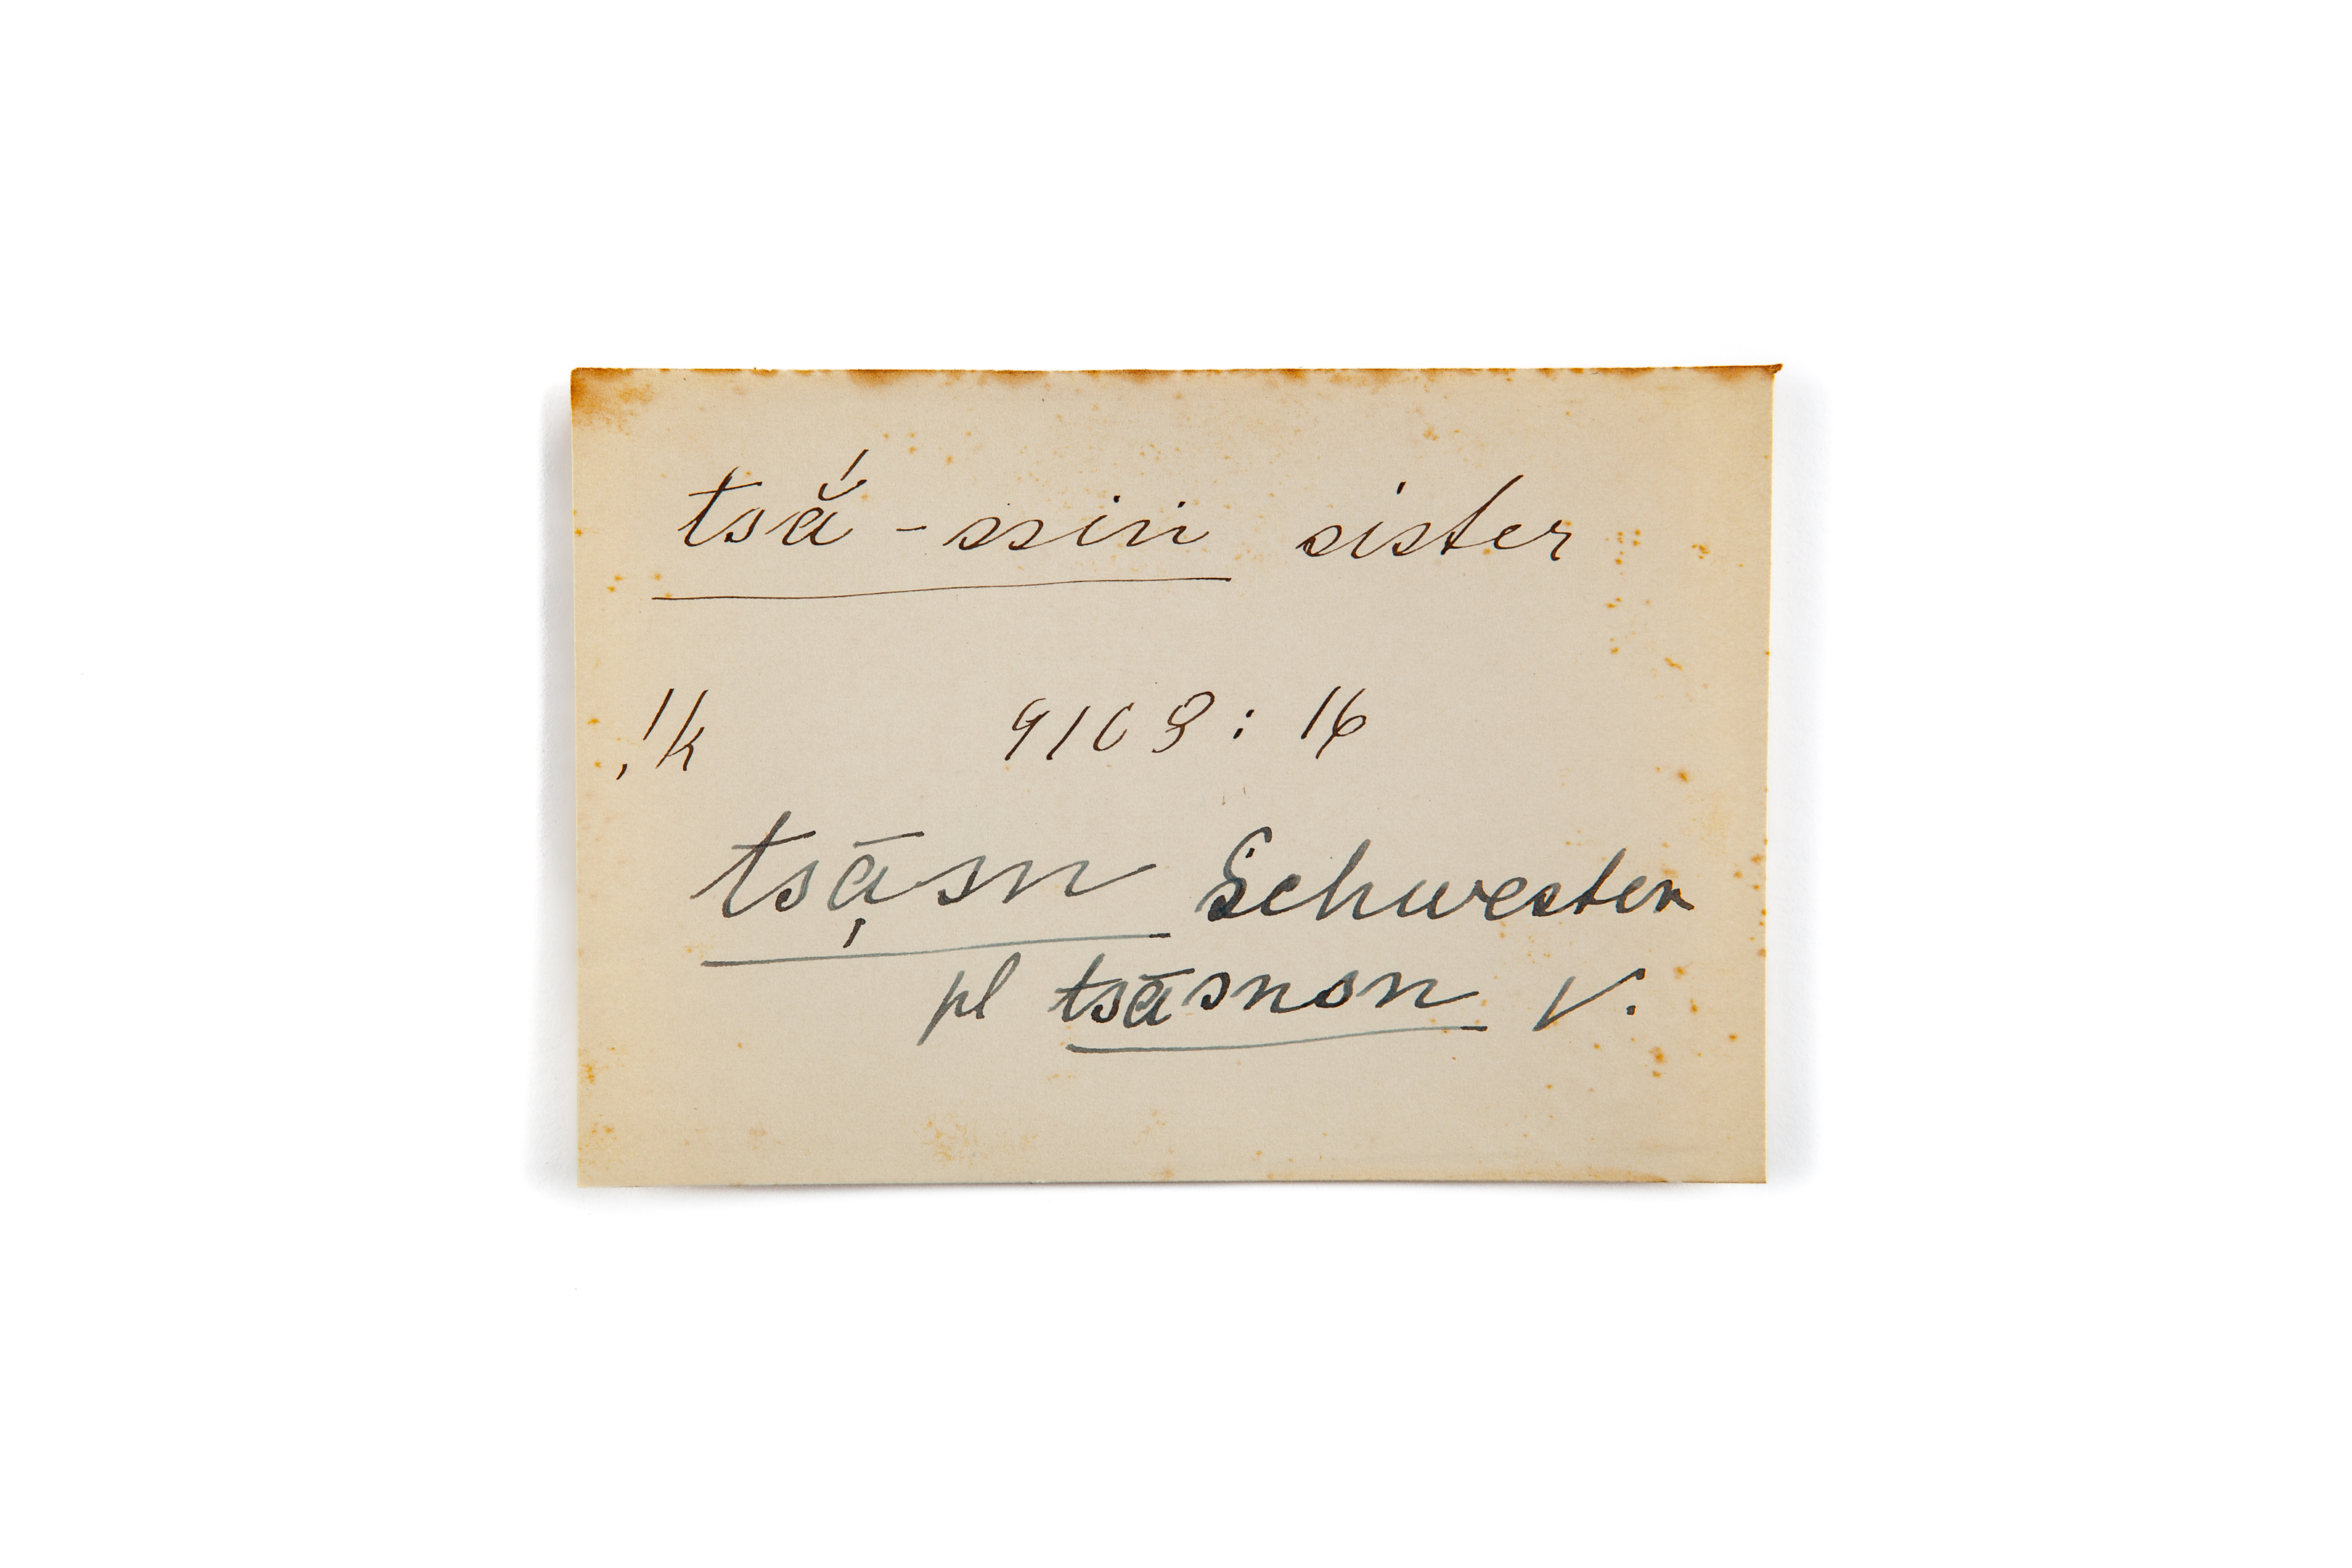 tsắ-ssin sister
!k 9103 : 16
tsā̩sn Schwester
pl tsāsnon V.